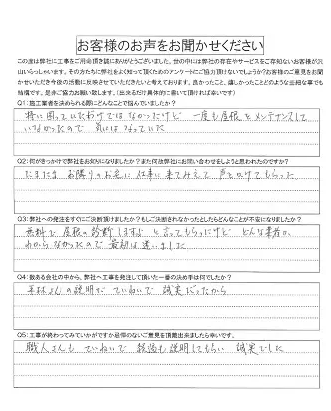 お客様のお声をお聞かせください
この度は弊社に工事をご用命頂き誠にありがとうございました。世の中には弊社の存在やサービスをご存知ないお客様が沢
山いらっしゃいます。その方たちに弊社をよく知って頂くためのアンケートにご協力頂けないでしょうか?お客様のご意見をお聞
かせいただき今後の活動に反映させていただきたいと考えております。良かったこと、嬉しかったことどのような些細な事でも
結構です。是非ご協力お願い致します。(出来るだけ具体的に書いて頂ければ幸いです)
Q1:施工業者を決められる際にどんなことで悩んでいましたか?
特に困っていたわけではなかったけど 一度も屋根をメンテナンスして
いなかったので 気にはなっていた
Q2:何がきっかけで弊社をお知りになりましたか?また何故弊社にお問い合わせをしようと思われたのですか?
たまたま お隣りのお宅に 仕事に来てみえて 声をかけてもらった
Q3:弊社への発注をすぐにご決断頂けましたか?もしご決断されなかったとしたらどんなことが不安になりましたか?
無料で 屋根の診断しますよ と言ってもらったけど どんな業者か
わからなかったので 最初は迷いました
Q4:数ある会社の中から、弊社へ工事を発注して頂いた一番の決め手は何でしたか?
さんの説明が ていねいで 誠実だったから
Q5:工事が終わってみていかがですか忌仰のないご意見を頂戴出来ましたら幸いです。
職人さんも ていねいで 経過も説明してもらい 誠実でした